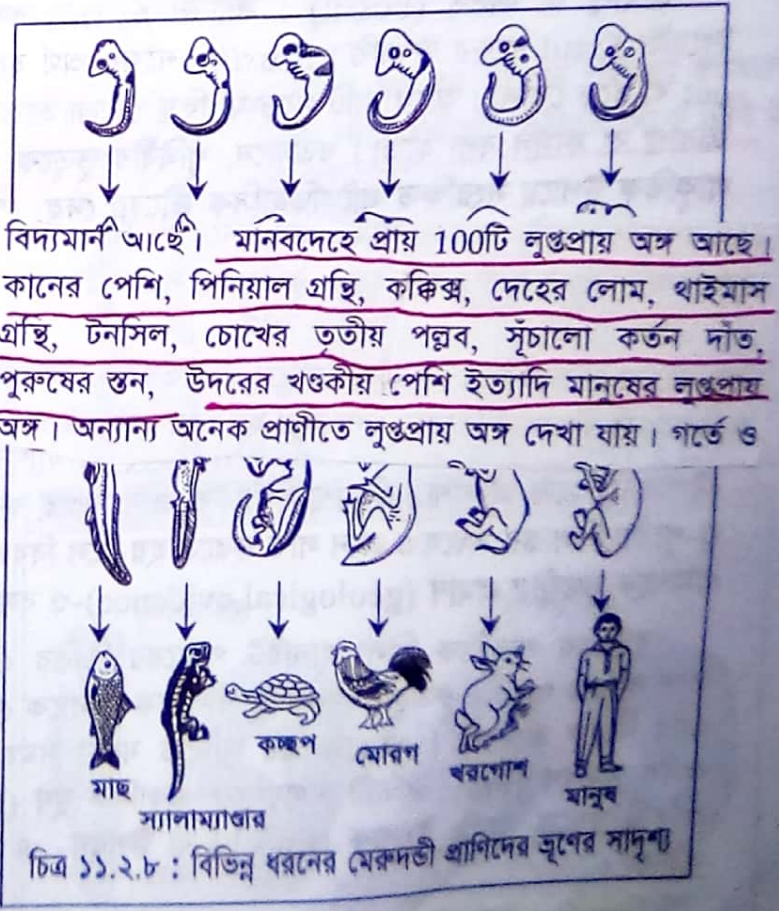 বিদ্যমান আছে। মানবদেহে প্রায় 100টি লুপ্তপ্রায় অঙ্গ আছে।
কানের পেশি, পিনিয়াল গ্রন্থি, কক্কিক্স, দেহের লোম, থাইমাস
গ্রন্থি, টনসিল, চোখের তৃতীয় পল্লব, সূঁচালো কর্তন দাঁত,
পুরুষের স্তন, উদরের খণ্ডকীয় পেশি ইত্যাদি মানুষের লুপ্তপ্রায়
অঙ্গ। অন্যান্য অনেক প্রাণীতে লুপ্তপ্রায় অঙ্গ দেখা যায়। গর্তে ও
মাছ
স্যালাম্যাণ্ডার
কচ্ছপ
মোরগ
খরগোশ
মানুষ
চিত্র ১১.২.৮ : বিভিন্ন ধরনের মেরুদন্ডী প্রাণিদের ভ্রূণের সাদৃশ্য